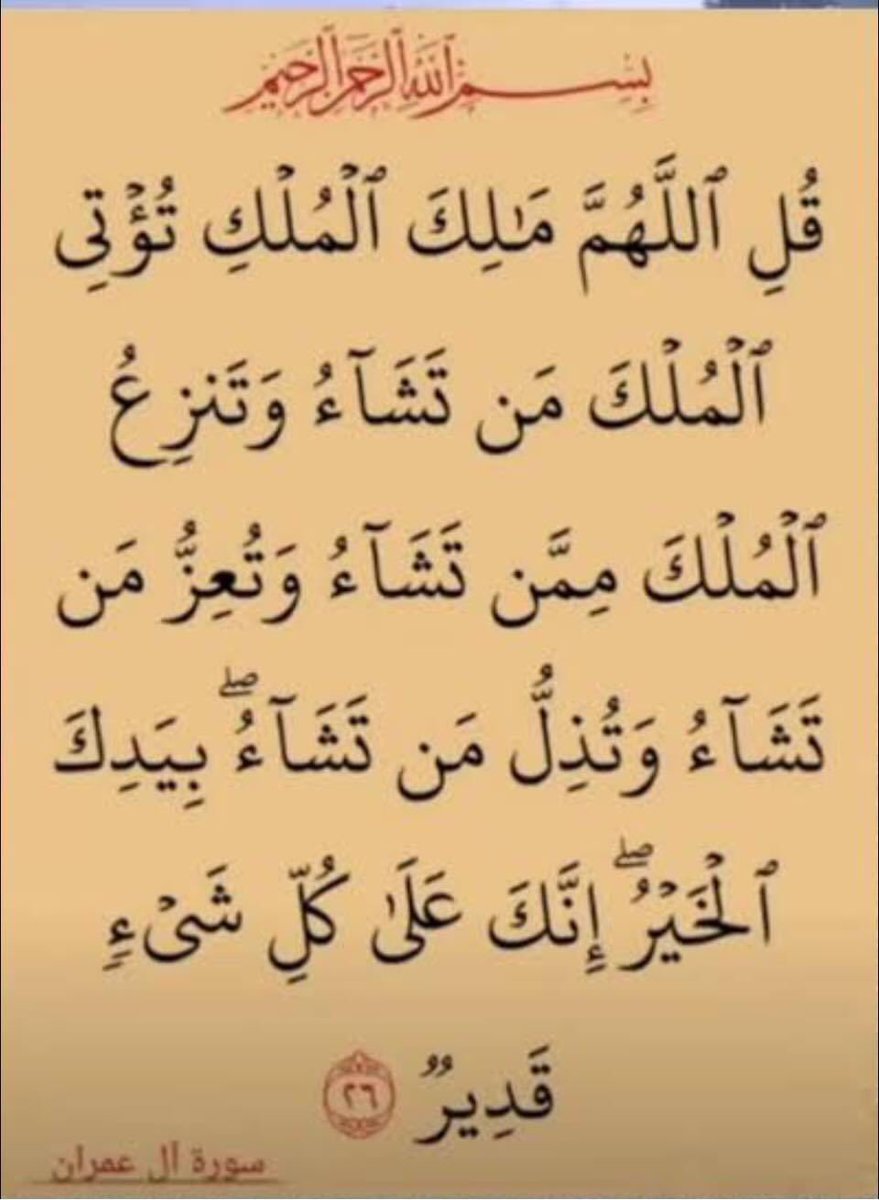 بِسْمِ ٱللَّهِ ٱلرَّحْمَٰنِ ٱلرَّحِيمِ
قُلِ ٱللَّهُمَّ مَـٰلِكَ ٱلْمُلْكِ تُؤْتِى
ٱلْمُلْكَ مَن تَشَآءُ وَتَنزِعُ
ٱلْمُلْكَ مِمَّن تَشَآءُ وَتُعِزُّ مَن
تَشَآءُ وَتُذِلُّ مَن تَشَآءُ ۖ بِيَدِكَ
ٱلْخَيْرُ ۖ إِنَّكَ عَلَىٰ كُلِّ شَىْءٍ
قَدِيرٌ ٢٦
سورة آل عمران